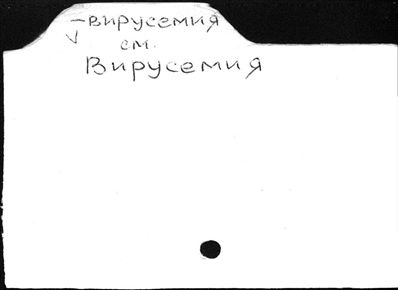 -вирусемия
см.
Вирусемия